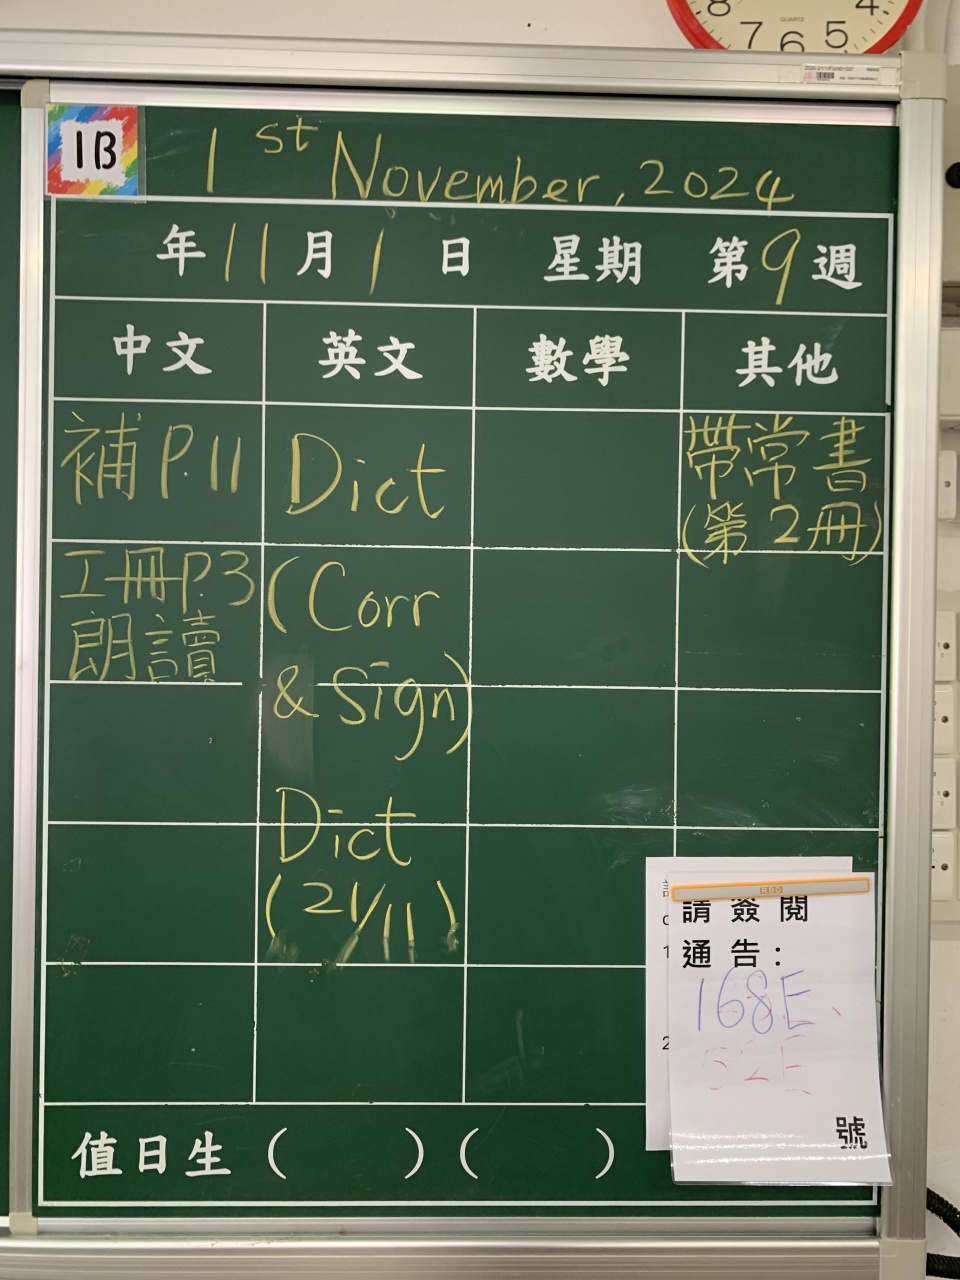 8 4
7 6 5
QUARTZ
1B
1st November, 2024
年 11 月 1 日 星期 第 9 週
中文 英文 數學 其他
補 P.11
工冊 P.3
朗讀
Dict
(Corr
& Sign)
Dict
(21/11)
帶常書
(第2冊)
RED
請簽閱
通告:
168E、
52E
號
值日生 ( ) ( )